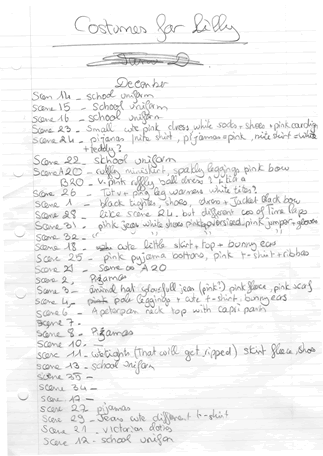 Costumes for Lilly
December
Scen 14 - school uniform
Scene 15 - School uniform
Scene 16 - school uniform
Scene 23 - Small cute pink dress, white socks + shoes + pink cardigan
Scene 24 - pijamas (nite shirt, pijamas = pink, nite shirt = white
+ teddy?
Scene 22 - school uniform
Scene A20 - ruffly miniskirt, sparkly leggings pink bow
B20 - V. pink ruffly ball dress
Scene 26 - Tutu + pink leg warmers white tites?
Scene 1 - black tights, shoes, dress + Jacket black bow
Scene 28 - like scene 24. but different
Scene 31 - pink jeans white shoes pink jumper + gloves
Scene 32 -
Scene 18 - cute little skirt + top + bunny ears
Scene 25 - pink pyjama bottoms, pink t-shirt + ribbons
Scene 21 - Same as A20
Scene 2 - Pijamas
Scene 3 - animal hat colourfull jean (pink!) pink fleece, pink scarf
Scene 4 - leggings + cute t-shirt, bunny ears
Scene 6 - A peterpan neck top with capri pants
Scene 7 -
Scene 8 - Pijamas
Scene 10 -
Scene 11 - (That will get ripped) skirt fleece, shoes
Scene 13 - school unifom
Scene 35 -
Scene 34 -
Scene 17 -
Scene 27 pijamas
Scene 29 - Jeans cute different t-shirt
Scene 21 - Victorian
Scene 12 - school unifom